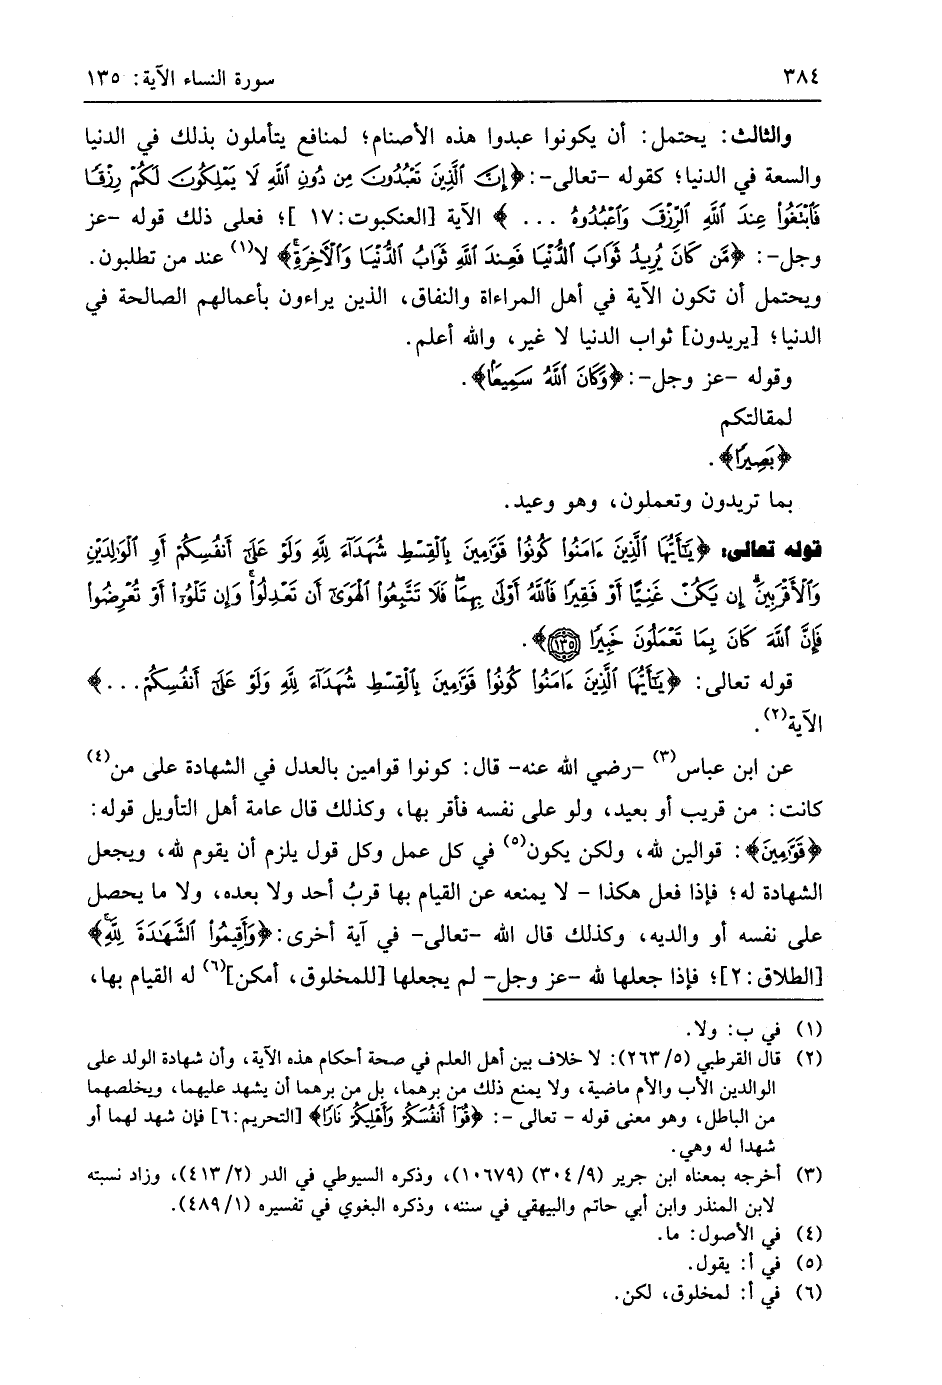 ٣٨٤ سورة النساء الآية: ١٣٥
والثالث: يحتمل: أن يكونوا عبدوا هذه الأصنام؛ لمنافع يتأملون بذلك في الدنيا
والسعة في الدنيا؛ كقوله -تعالى-: ﴿إِنَّ ٱلَّذِينَ تَعْبُدُونَ مِن دُونِ ٱللَّهِ لَا يَمْلِكُونَ لَكُمْ رِزْقًا
فَٱبْتَغُوا۟ عِندَ ٱللَّهِ ٱلرِّزْقَ وَٱعْبُدُوهُ ... ﴾ الآية [العنكبوت: ١٧ ]؛ فعلى ذلك قوله -عز
وجل-: ﴿مَّن كَانَ يُرِيدُ ثَوَابَ ٱلدُّنْيَا فَعِندَ ٱللَّهِ ثَوَابُ ٱلدُّنْيَا وَٱلْآخِرَةِۚ﴾ لا(١) عند من تطلبون.
ويحتمل أن تكون الآية في أهل المراءاة والنفاق، الذين يراءون بأعمالهم الصالحة في
الدنيا؛ [يريدون] ثواب الدنيا لا غير، والله أعلم.
وقوله -عز وجل-: ﴿وَكَانَ ٱللَّهُ سَمِيعًۢا﴾.
لمقالتكم
﴿بَصِيرًا﴾.
بما تريدون وتعملون، وهو وعيد.
قوله تعالى: ﴿يَٰٓأَيُّهَا ٱلَّذِينَ ءَامَنُوا۟ كُونُوا۟ قَوَّٰمِينَ بِٱلْقِسْطِ شُهَدَآءَ لِلَّهِ وَلَوْ عَلَىٰٓ أَنفُسِكُمْ أَوِ ٱلْوَٰلِدَيْنِ
وَٱلْأَقْرَبِينَۚ إِن يَكُنْ غَنِيًّا أَوْ فَقِيرًا فَٱللَّهُ أَوْلَىٰ بِهِمَاۖ فَلَا تَتَّبِعُوا۟ ٱلْهَوَىٰٓ أَن تَعْدِلُوا۟ۚ وَإِن تَلْوُۥٓا۟ أَوْ تُعْرِضُوا۟
فَإِنَّ ٱللَّهَ كَانَ بِمَا تَعْمَلُونَ خَبِيرًا ١٣٥﴾.
قوله تعالى: ﴿يَٰٓأَيُّهَا ٱلَّذِينَ ءَامَنُوا۟ كُونُوا۟ قَوَّٰمِينَ بِٱلْقِسْطِ شُهَدَآءَ لِلَّهِ وَلَوْ عَلَىٰٓ أَنفُسِكُمْ...﴾
الآية(٢).
عن ابن عباس(٣) -رضي الله عنه- قال: كونوا قوامين بالعدل في الشهادة على من(٤)
كانت: من قريب أو بعيد، ولو على نفسه فأقر بها، وكذلك قال عامة أهل التأويل قوله:
﴿قَوَّٰمِينَ﴾: قوالين لله، ولكن يكون(٥) في كل عمل وكل قول يلزم أن يقوم لله، ويجعل
الشهادة له؛ فإذا فعل هكذا - لا يمنعه عن القيام بها قربُ أحد ولا بعده، ولا ما يحصل
على نفسه أو والديه، وكذلك قال الله -تعالى- في آية أخرى: ﴿وَأَقِيمُوا۟ ٱلشَّهَٰدَةَ لِلَّهِۚ﴾
[الطلاق: ٢]؛ فإذا جعلها لله -عز وجل- لم يجعلها [للمخلوق، أمكن](٦) له القيام بها،
(١) في ب: ولا.
(٢) قال القرطبي (٢٦٣/٥): لا خلاف بين أهل العلم في صحة أحكام هذه الآية، وأن شهادة الولد على
الوالدين الأب والأم ماضية، ولا يمنع ذلك من برهما، بل من برهما أن يشهد عليهما، ويخلصهما
من الباطل، وهو معنى قوله - تعالى -: ﴿قُوٓا۟ أَنفُسَكُمْ وَأَهْلِيكُمْ نَارًا﴾ [التحريم: ٦] فإن شهد لهما أو
شهدا له وهي.
(٣) أخرجه بمعناه ابن جرير (٣٠٤/٩) (١٠٦٧٩)، وذكره السيوطي في الدر (٤١٣/٢)، وزاد نسبته
لابن المنذر وابن أبي حاتم والبيهقي في سننه، وذكره البغوي في تفسيره (٤٨٩/١).
(٤) في الأصول: ما.
(٥) في أ: يقول.
(٦) في أ: لمخلوق، لكن.